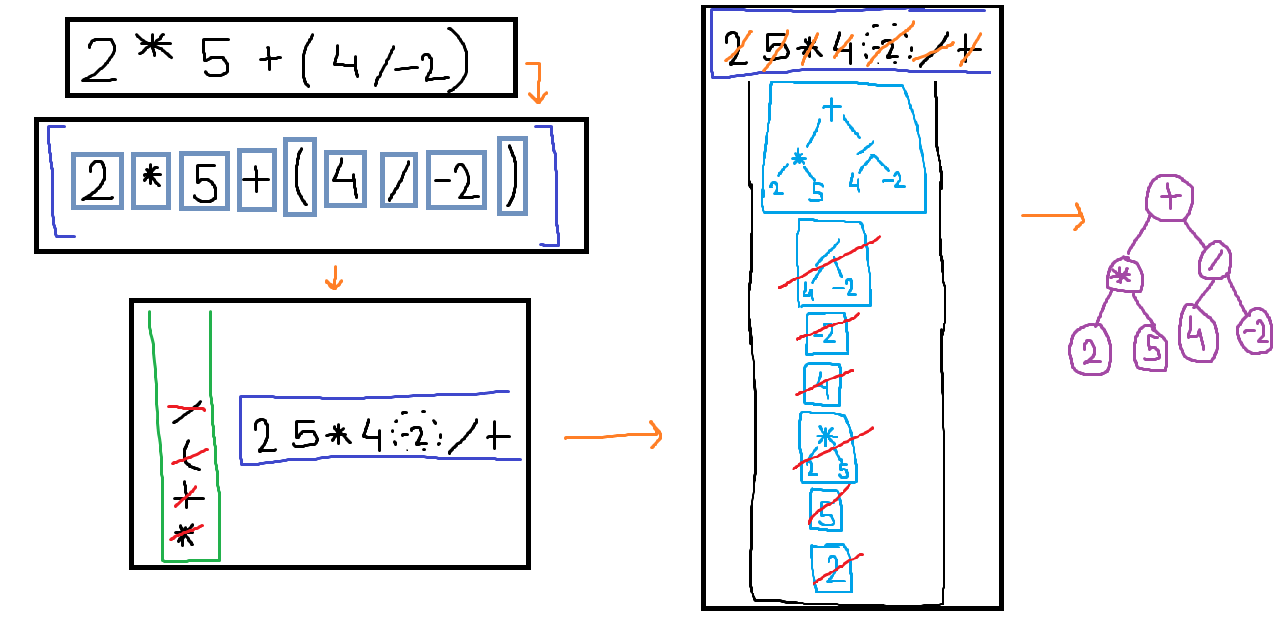 2 * 5 + ( 4 / -2 )
[ 2 * 5 + ( 4 / -2 ) ]
/
(
+
*
2 5 * 4 -2 / +
2 5 * 4 -2 / +
+
* /
2 5 4 -2
/
4 -2
-2
4
*
2 5
5
2
+
* /
2 5 4 -2